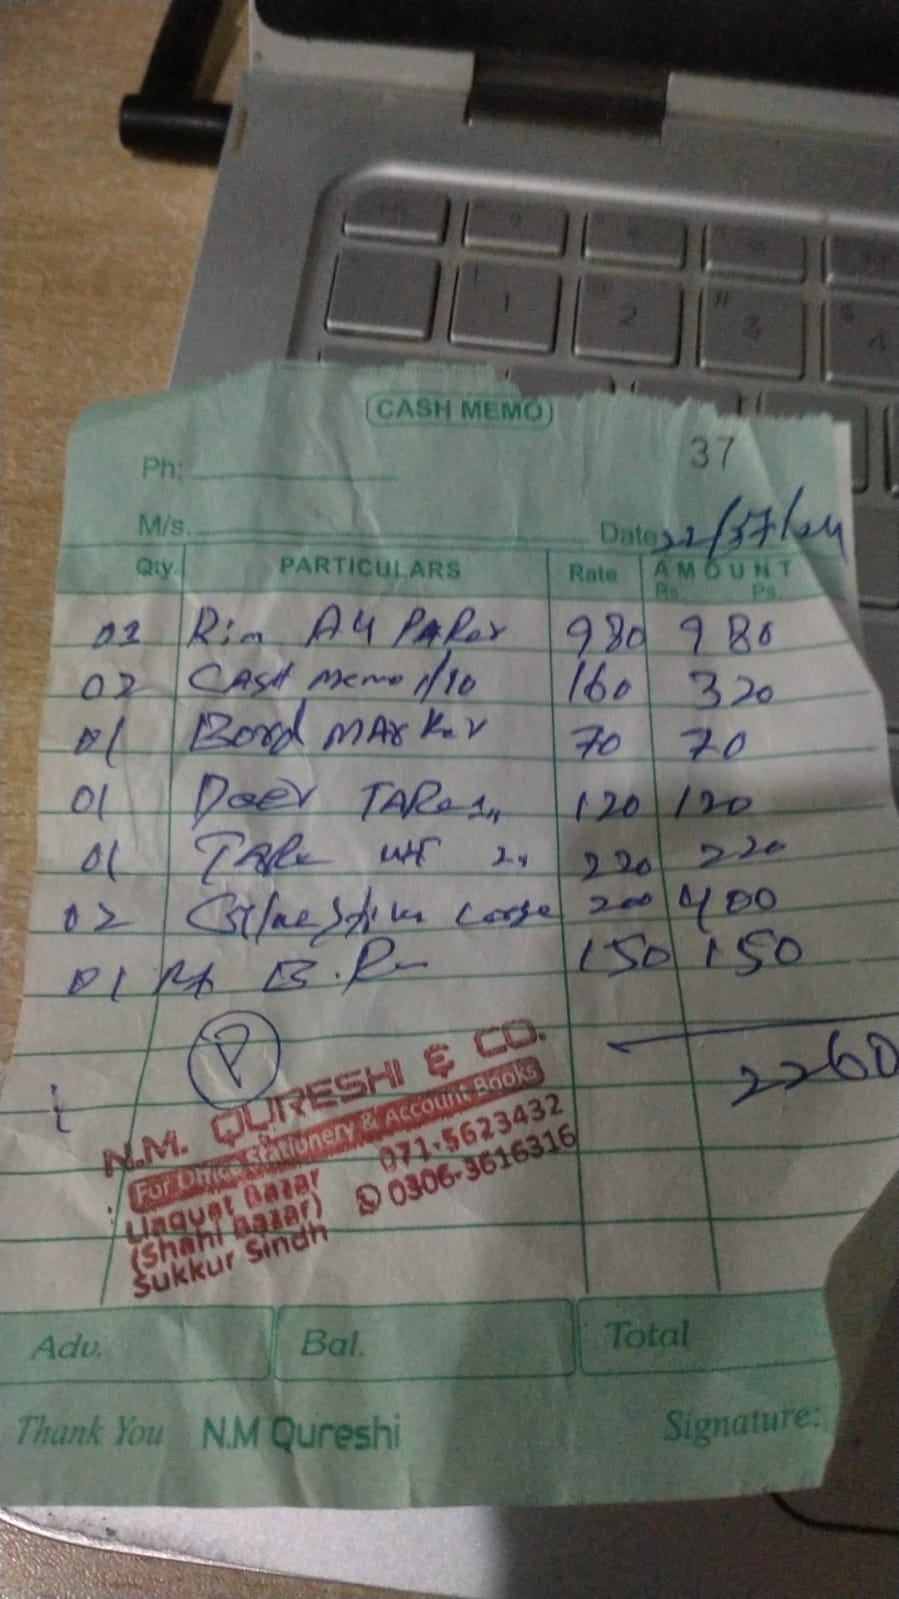 CASH MEMO
37
Ph:
M/s. Date 22/37/24
Qty. PARTICULARS Rate AMOUNT
Rs. Ps.
01 Rim A4 PAPer 980 980
02 CASH memo 1/10 160 320
01 Bord MARKer 70 70
01 TAPe 1" 120 120
01 TAPe 2" 220 220
02 Large 200 400
01 150 150
P
2260
N.M. QURESHI & CO.
For Office Stationery & Account Books
Liaquat Bazar 071-5623432
(Shahi Bazar) 0306-3616316
Sukkur Sindh
Adv. Bal. Total
Thank You N.M Qureshi Signature:
1
2
3
4